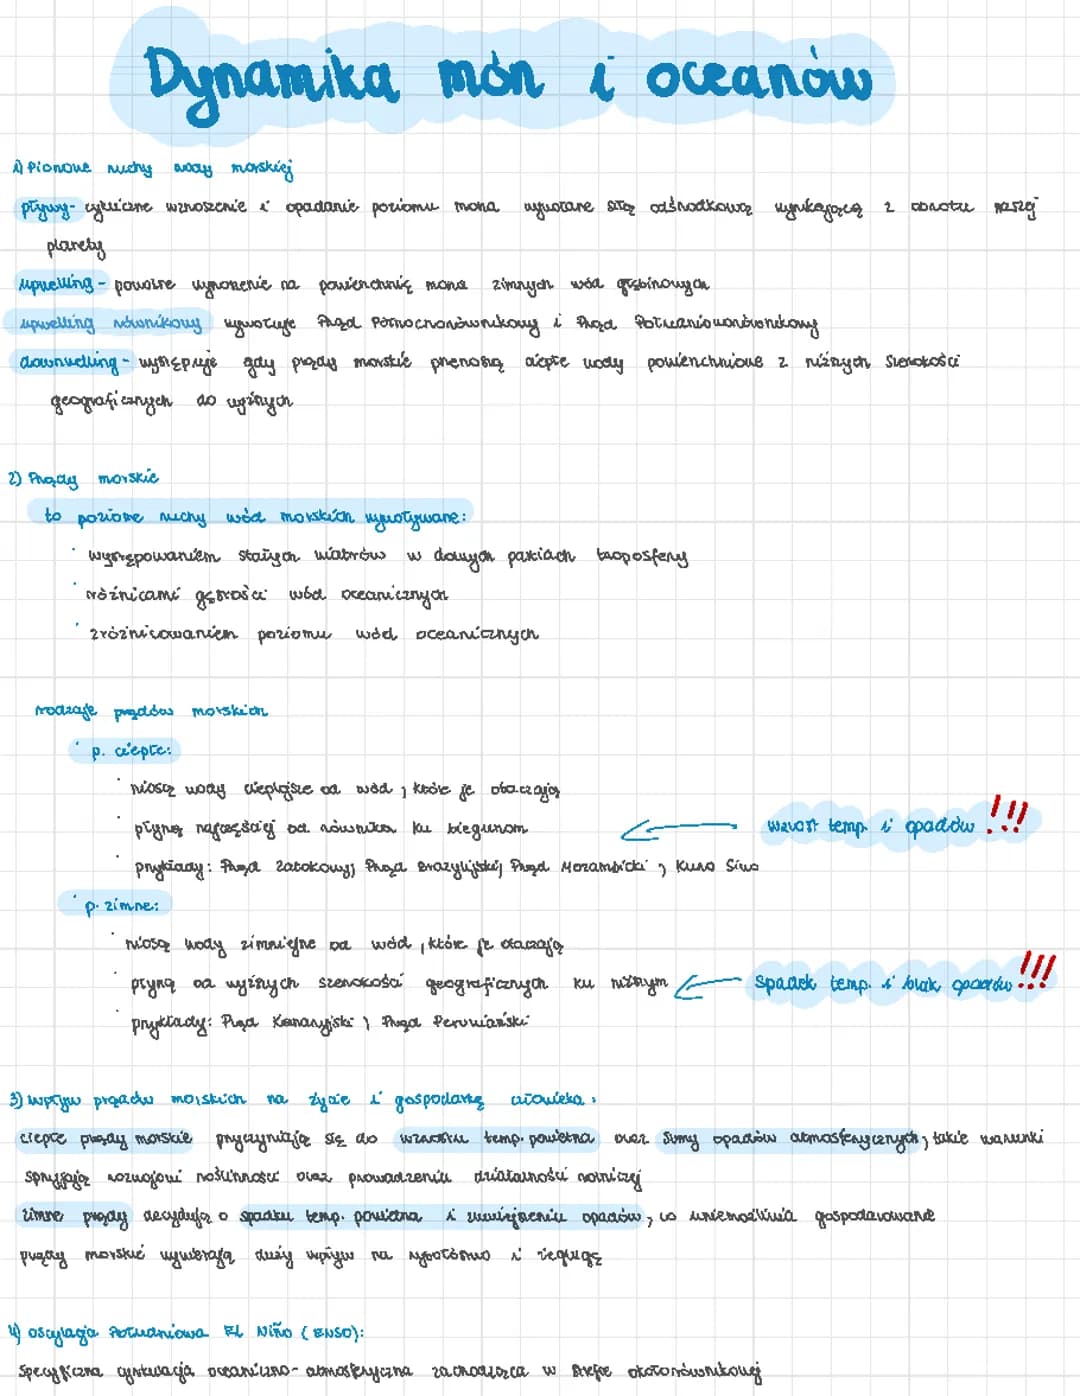 Dynamika mórz i oceanów
1) Pionowe ruchy wody morskiej
pływy- cykliczne wznoszenie i opadanie poziomu morza wywołane siłą odśrodkową wynikającą z obrotu naszej
planety
upwelling - powolne wynoszenie na powierzchnię morza zimnych wód głębinowych
upwelling równikowy wywołuje Prąd Północnorównikowy i Prąd Południoworównikowy
downwelling - występuje gdy prądy morskie przenoszą ciepłe wody powierzchniowe z niższych szerokości
geograficznych do wyższych
2) Prądy morskie
to poziome ruchy wód morskich wywoływane:
· występowaniem stałych wiatrów w dolnych partiach troposfery
· różnicami gęstości wód oceanicznych
· zróżnicowaniem poziomu wód oceanicznych
rodzaje prądów morskich
· p. ciepłe:
· niosą wody cieplejsze od wód, które je otaczają
· płyną najczęściej od równika ku biegunom
wzrost temp. i opadów !!!
· przykłady: Prąd Zatokowy, Prąd Brazylijski, Prąd Mozambicki, Kuro Siwo
· p. zimne:
· niosą wody zimniejsze od wód, które je otaczają
· płyną od wyższych szerokości geograficznych ku niższym
spadek temp. i brak opadów !!!
· przykłady: Prąd Kanaryjski, Prąd Peruwiański
3) wpływ prądów morskich na życie i gospodarkę człowieka:
ciepłe prądy morskie przyczyniają się do wzrostu temp. powietrza oraz sumy opadów atmosferycznych, takie warunki
sprzyjają rozwojowi roślinności oraz prowadzeniu działalności rolniczej
zimne prądy decydują o spadku temp. powietrza i zmniejszeniu opadów, co uniemożliwia gospodarowanie
prądy morskie wywierają duży wpływ na rybołóstwo i żeglugę
4) oscylacja Południowa El Niño (ENSO):
specyficzna cyrkulacja oceaniczno- atmosferyczna zachodząca w strefie okołorównikowej